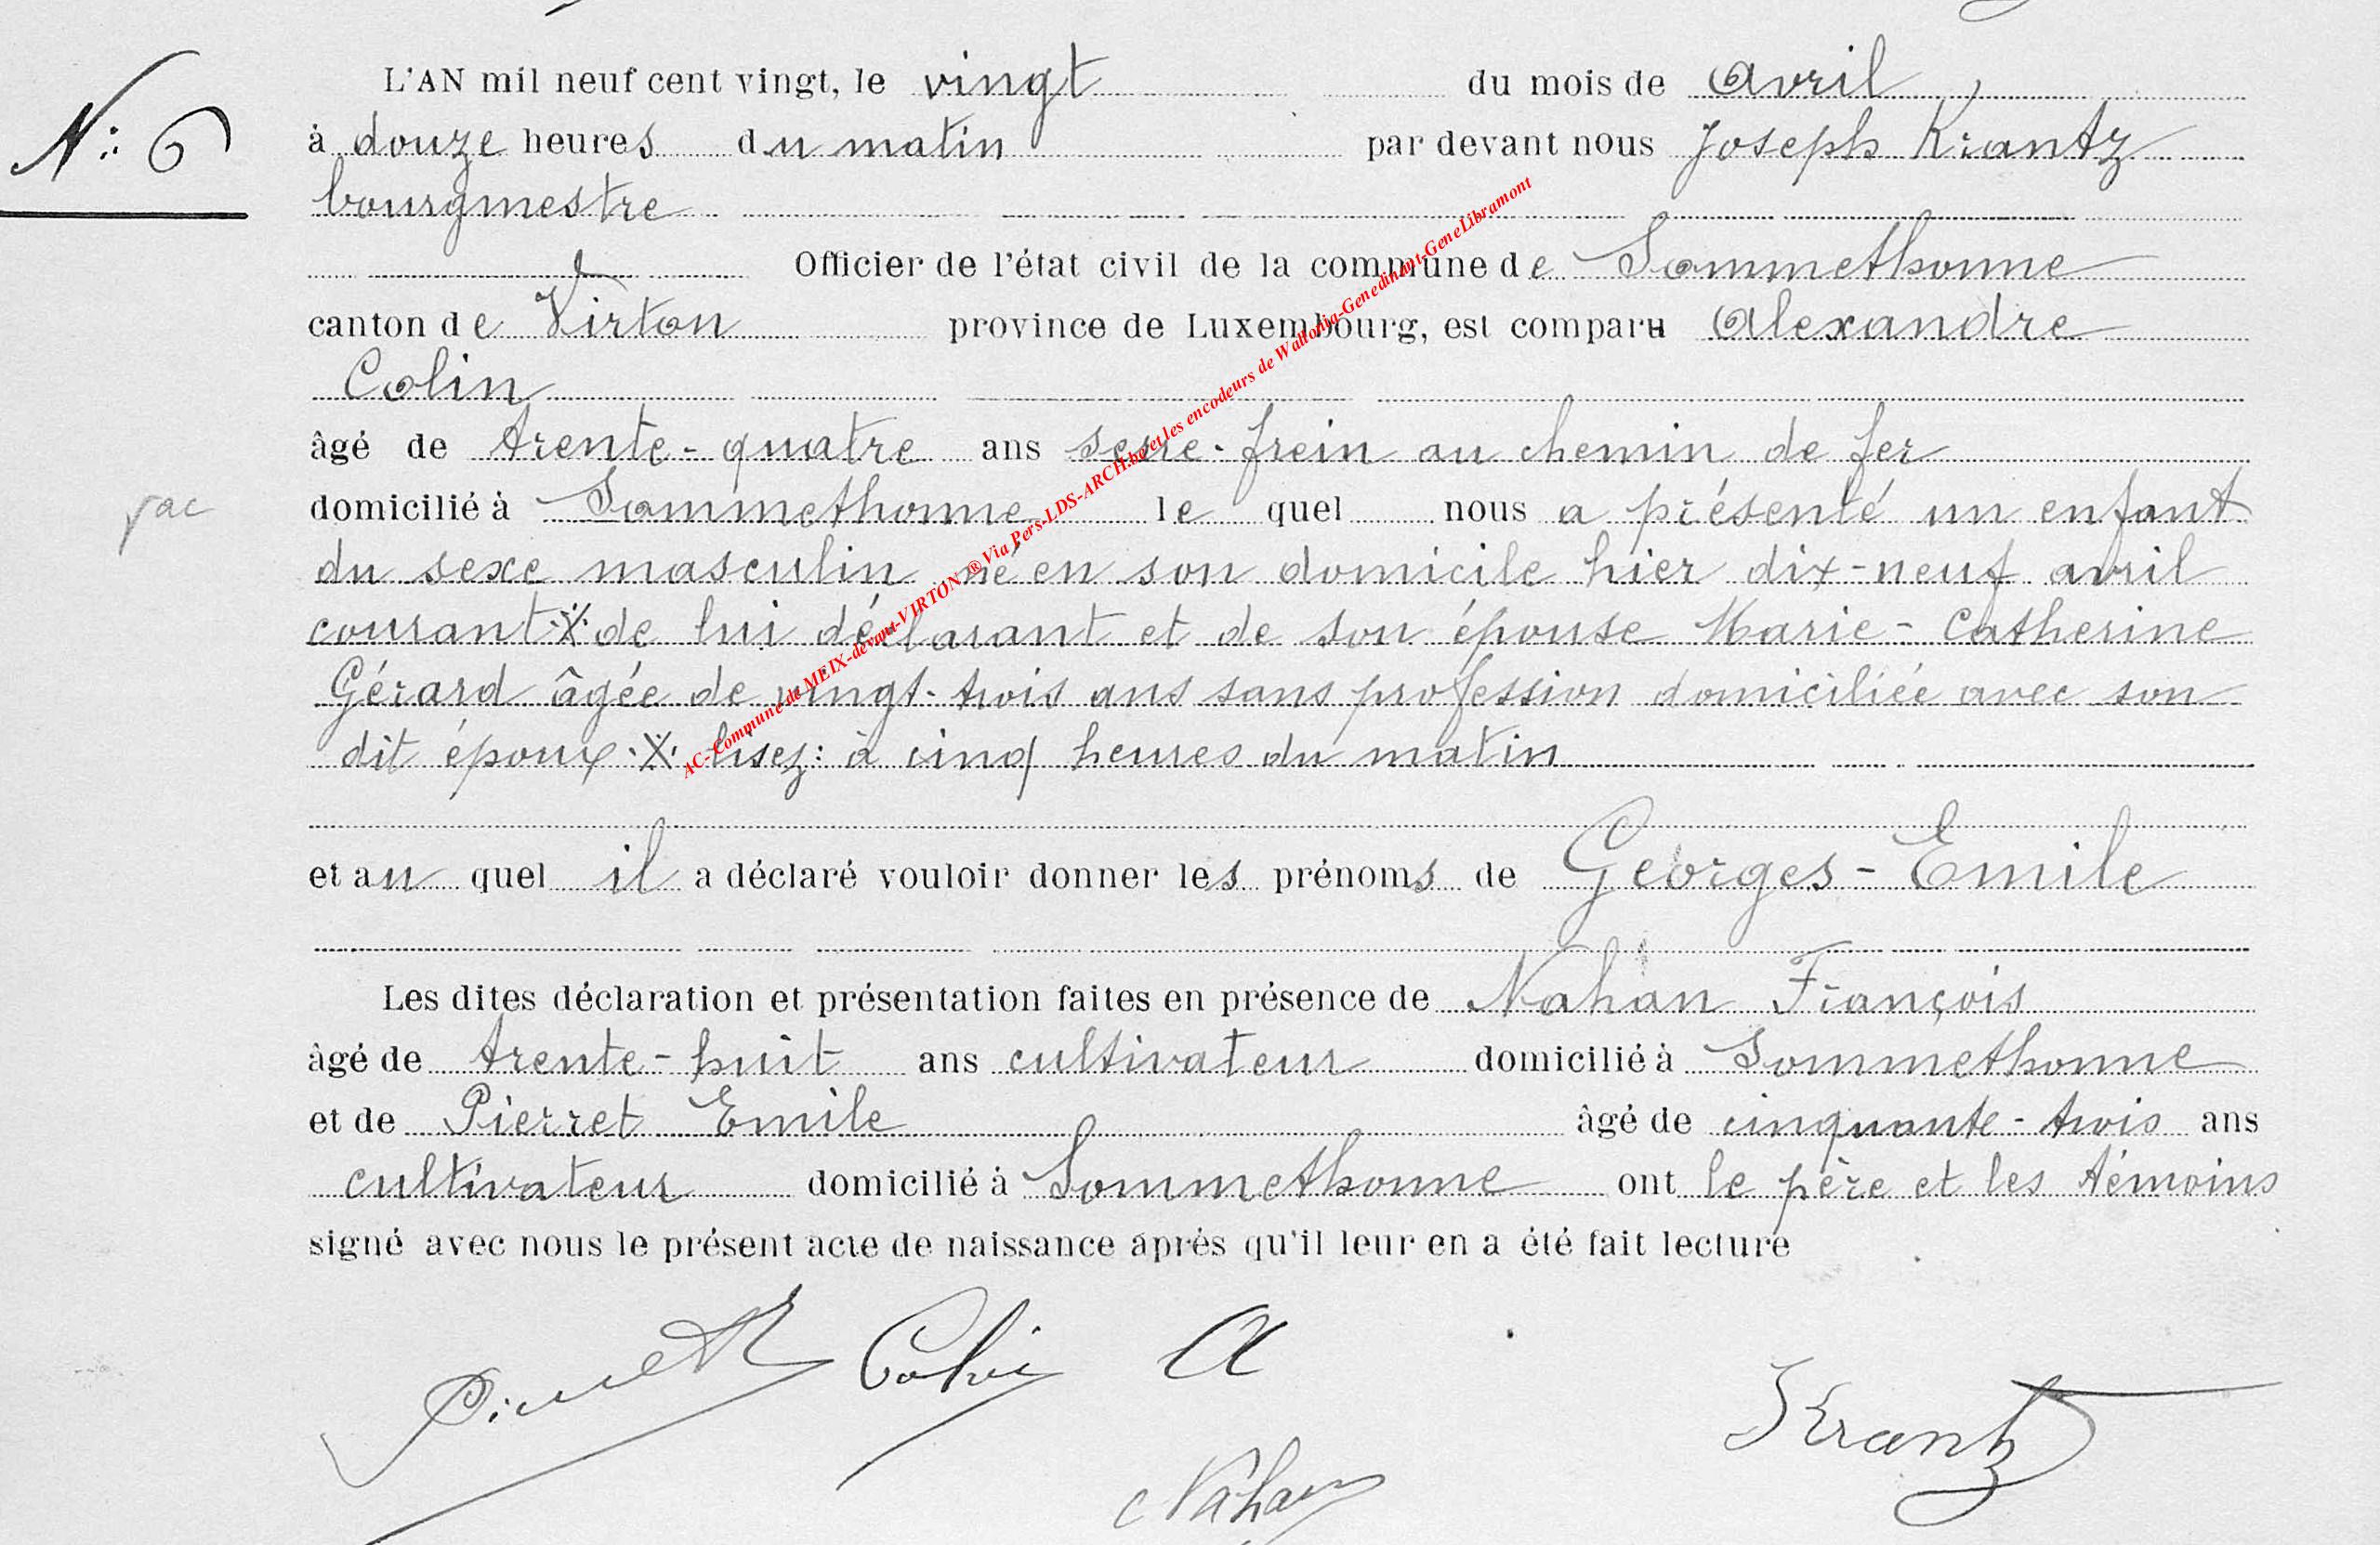 L'AN mil neuf cent vingt, le vingt du mois de Avril
N° 6
à douze heures du matin par devant nous Joseph Krantz
bourgmestre
Officier de l'état civil de la commune de Sommethonne
canton de Virton province de Luxembourg, est comparu Alexandre
Colin
âgé de trente-quatre ans serre-frein au chemin de fer
domicilié à Sommethonne le quel nous a présenté un enfant
du sexe masculin né en son domicile hier dix-neuf avril
courant·X·de lui déclarant et de son épouse Marie-Catherine
Gérard âgée de vingt-trois ans sans profession domiciliée avec son
dit époux·X· lisez: à cinq heures du matin
et au quel il a déclaré vouloir donner les prénoms de Georges-Emile
Les dites déclaration et présentation faites en présence de Nahan François
âgé de trente-huit ans cultivateur domicilié à Sommethonne
et de Pierret Emile âgé de cinquante-trois ans
cultivateur domicilié à Sommethonne ont le père et les témoins
signé avec nous le présent acte de naissance après qu'il leur en a été fait lecture
Pierret Colin A
JKrantz
Nahan
AC-Commune de MEIX-devant-VIRTON ® Via Pers-LDS-ARCH.be et les encodeurs de Wallonia-Genedinant-GeneLibramont